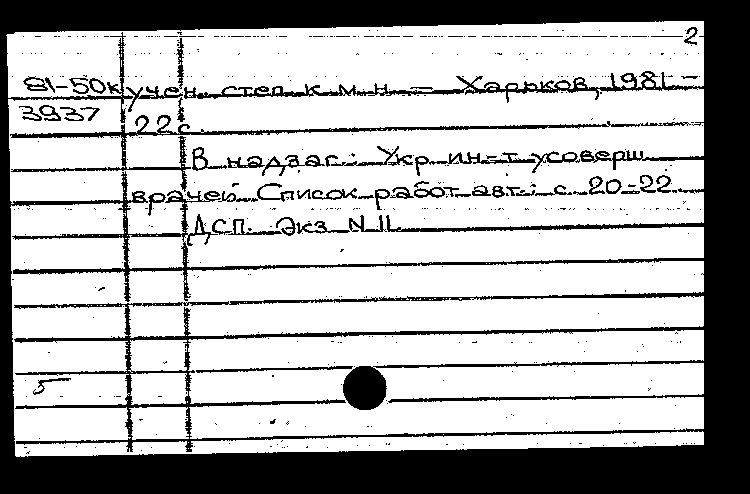 2
81-50к учен. степ. к. м. н. — Харьков, 1981. —
3937 22 с.
В надзаг.: Укр. ин-т усоверш.
врачей. Список работ авт.: с. 20-22.
ДСП. Экз. N 11.
5